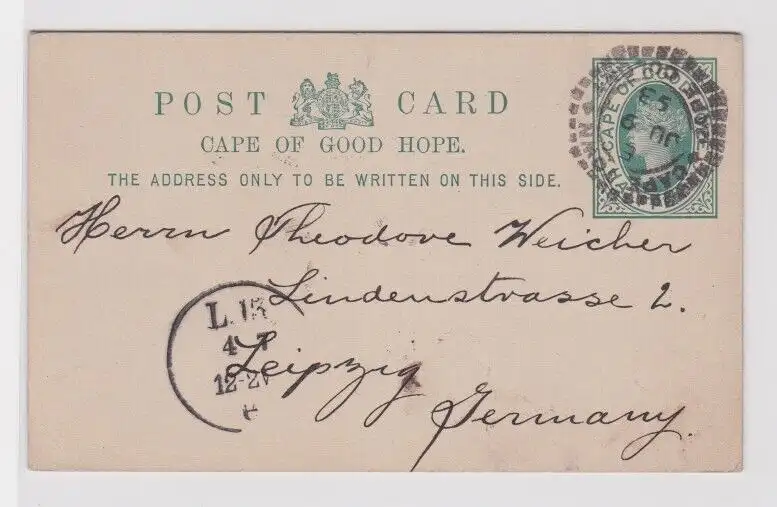 POST CARD
CAPE OF GOOD HOPE.
THE ADDRESS ONLY TO BE WRITTEN ON THIS SIDE.
CAPE OF GOOD
Herrn Theodore Weicher
Lindenstrasse 2.
Leipzig
Germany.
12-2V